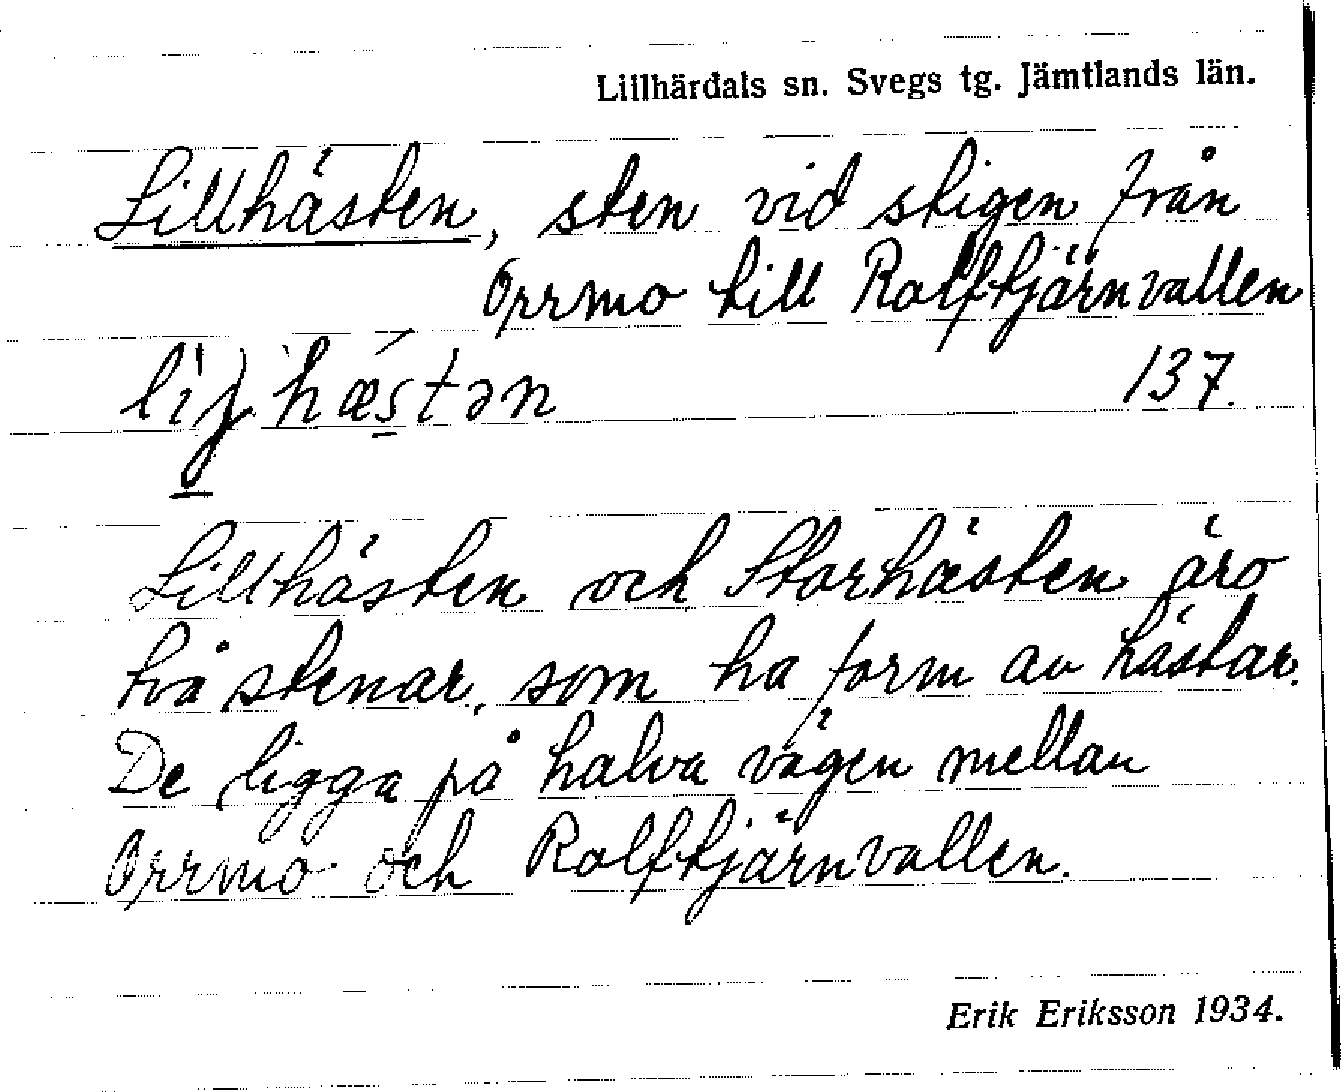 Lillhärdals sn. Svegs tg. Jämtlands län.
Lillhästen, sten vid stigen från
Orrmo till Rolftjärnvallen
137.
Lillhästen och Storhästen äro
två stenar, som ha form av hästar.
De ligga på halva vägen mellan
Orrmo och Rolftjärnvallen.
Erik Eriksson 1934.